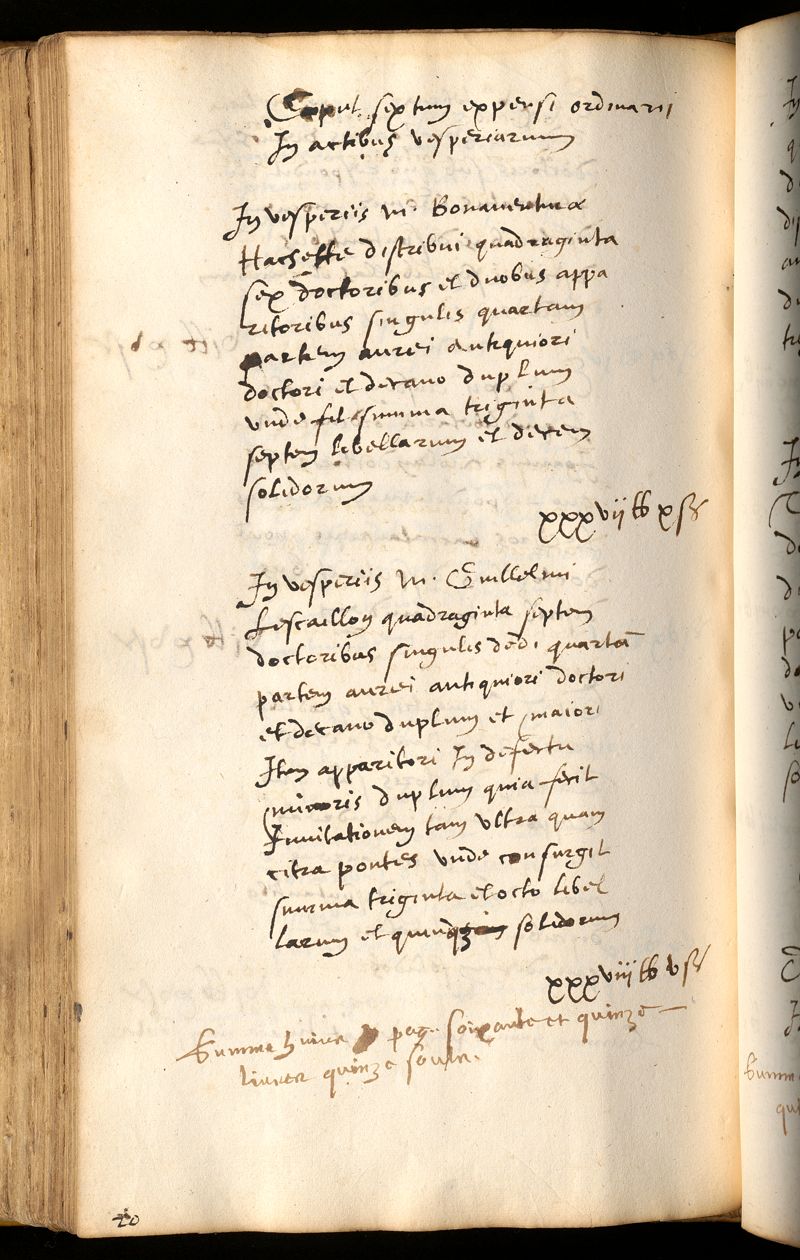 Caput septimum expensi ordinarii
In actibus vesperiarum
In vesperiis m. Bonaventuræ
Hachette distribui quadraginta
sex doctoribus et duobus appa
ritoribus singulis quartam
partem aurei antiquiori
doctori et decano duplum
unde fit summa triginta
septem libellarum et decem
solidorum
xxxvij lb x ss
In vesperiis m. Guillelmi
Lescaillon quadraginta septem
doctoribus singulis dedi quartā
partem aurei antiquiori doctori
et decano duplum et maiori
Item apparitori In defectu
minoris duplum quia fecit
Invitationem tam ultra quam
citra pontes unde consurgit
summa triginta et octo libel
larum et solidorum
xxxviij lb v ss
Summa huius pag. soixante et quinze
livres quinze soulz.
20